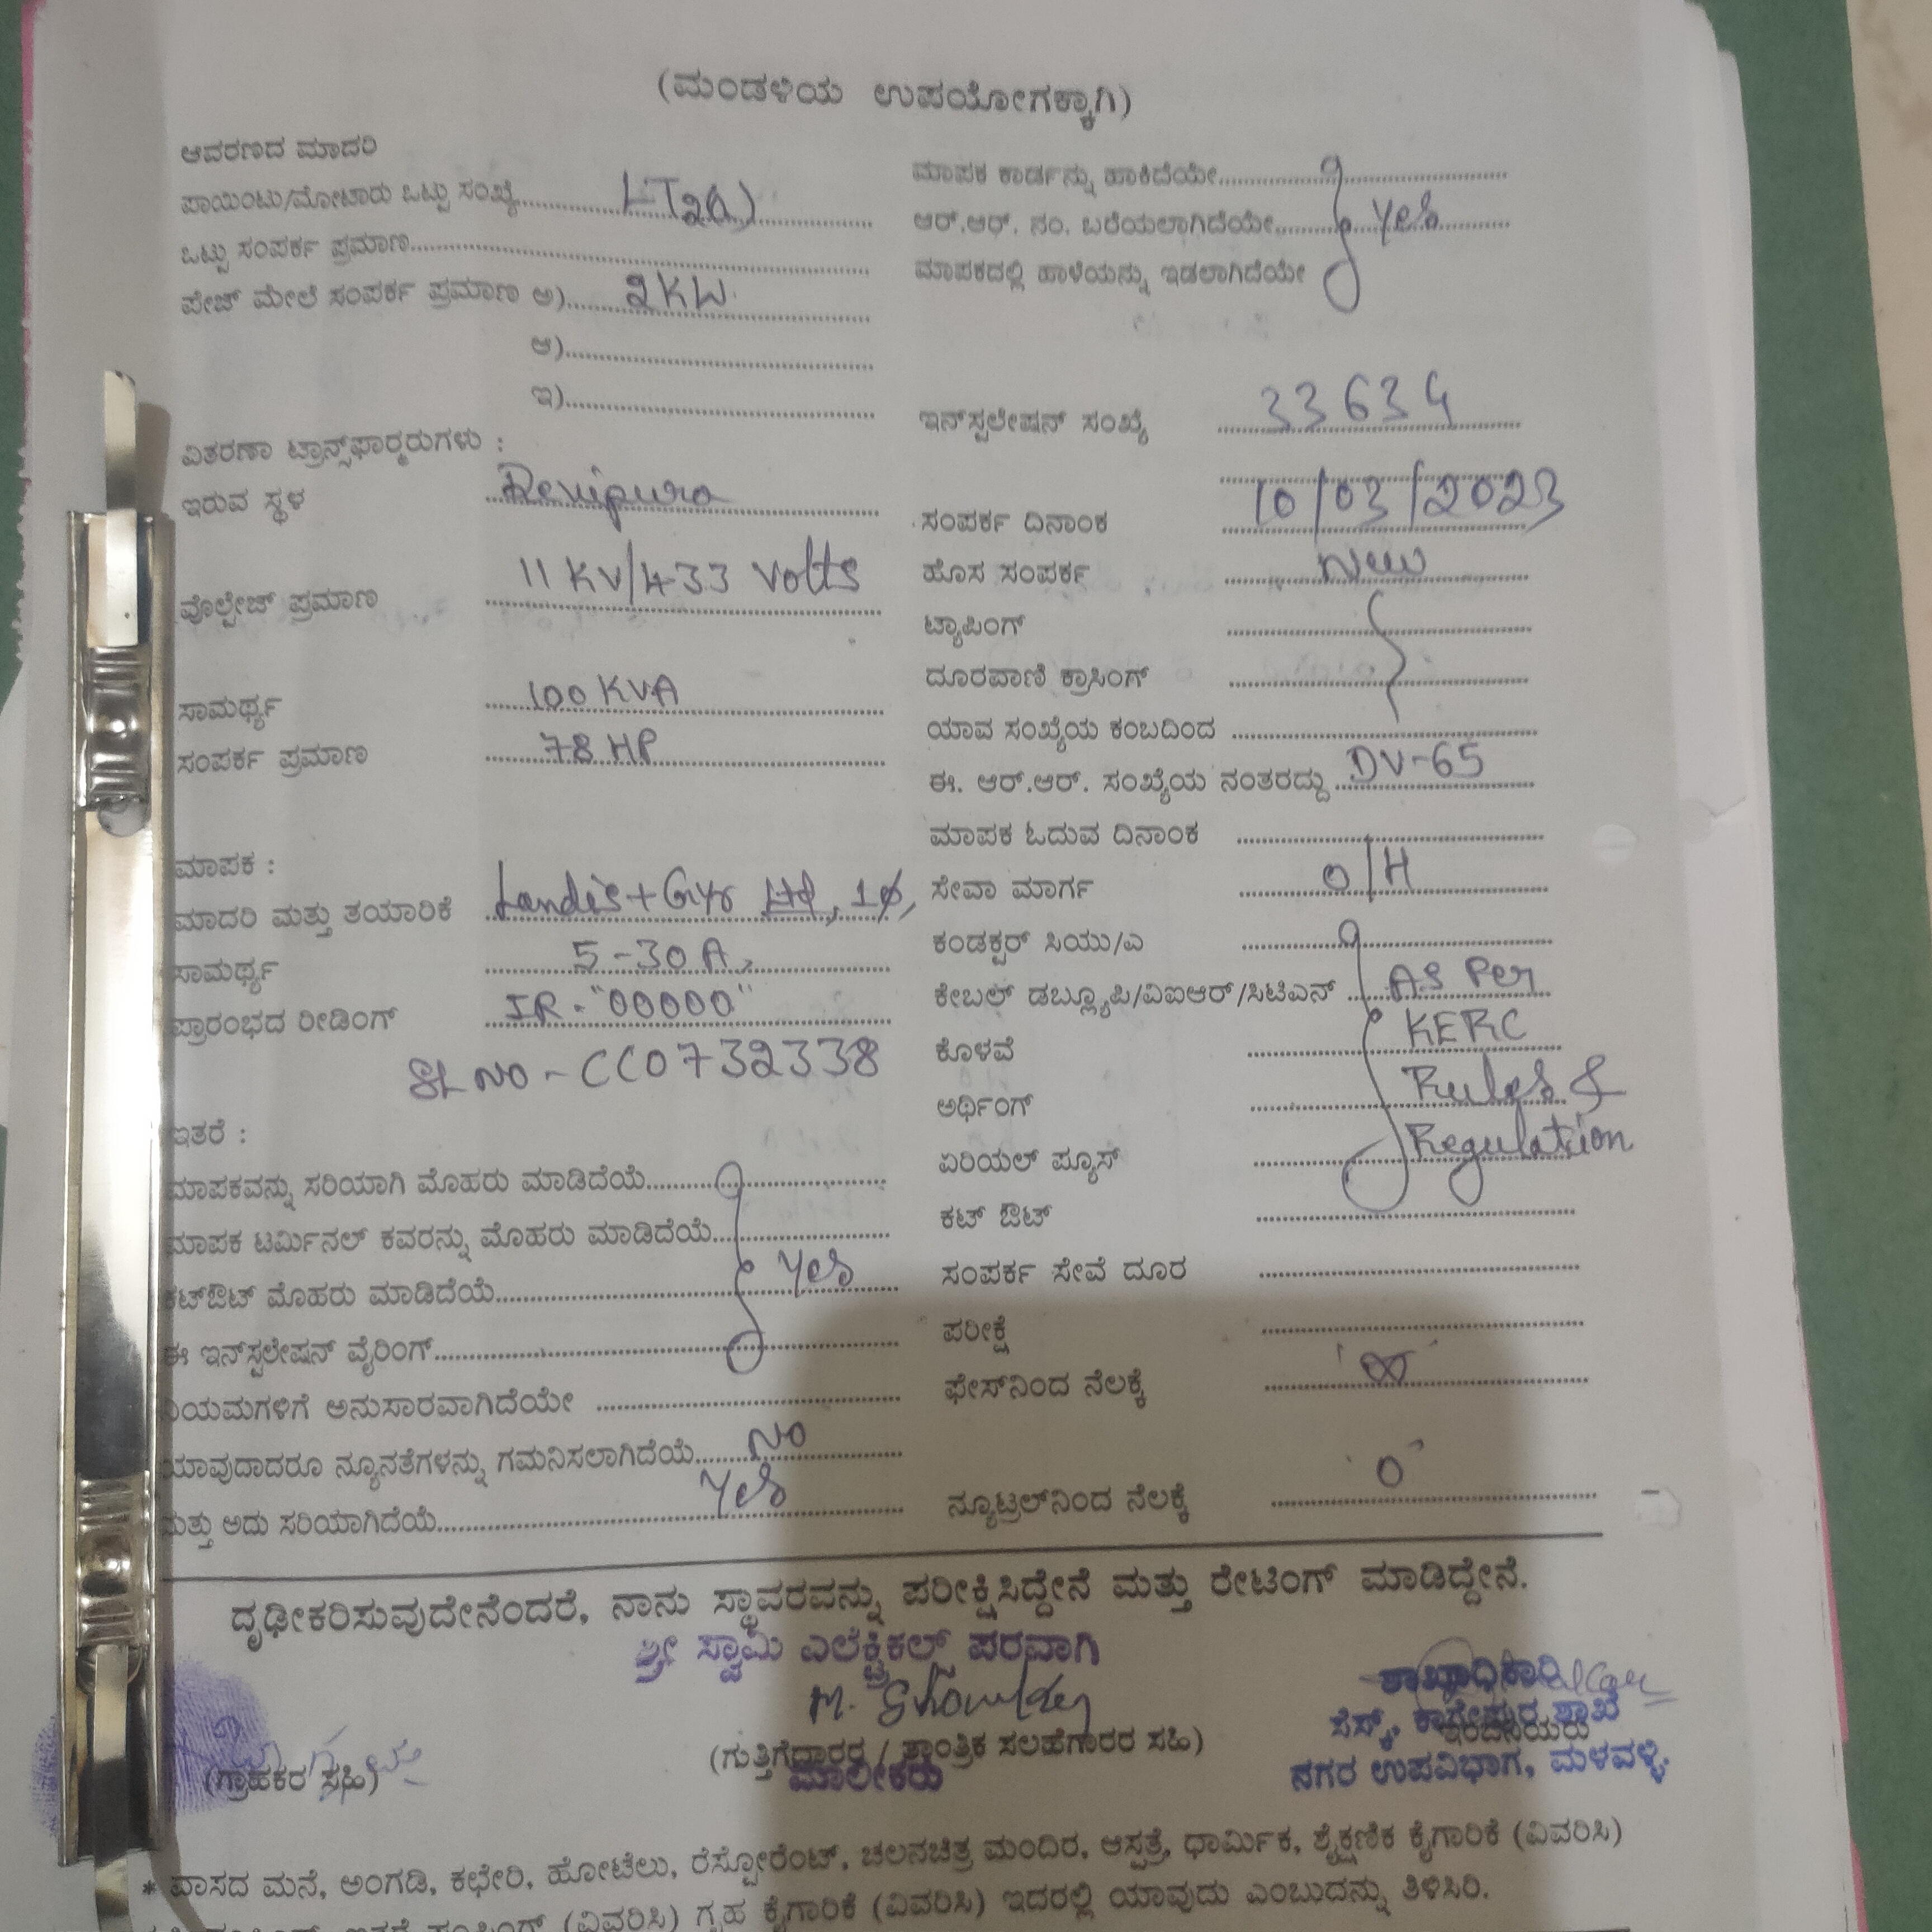 (ಮಂಡಳಿಯ ಉಪಯೋಗಕ್ಕಾಗಿ)
ಆವರಣದ ಮಾದರಿ
ಪಾಯಿಂಟು/ಮೋಟಾರು ಒಟ್ಟು ಸಂಖ್ಯೆ.......... LT2(a)
ಒಟ್ಟು ಸಂಪರ್ಕ ಪ್ರಮಾಣ..........
ಪೇಜ್ ಮೇಲೆ ಸಂಪರ್ಕ ಪ್ರಮಾಣ ಅ).......... 2KW.
ಆ)..........
ಇ)..........
ವಿತರಣಾ ಟ್ರಾನ್ಸ್‌ಫಾರ್ಮರುಗಳು :
ಇರುವ ಸ್ಥಳ .......... Devipura
ವೊಲ್ಟೇಜ್ ಪ್ರಮಾಣ .......... 11 KV/433 Volts
ಸಾಮರ್ಥ್ಯ .......... 100 KVA
ಸಂಪರ್ಕ ಪ್ರಮಾಣ .......... 78 HP
ಮಾಪಕ :
ಮಾದರಿ ಮತ್ತು ತಯಾರಿಕೆ .......... Landis+Gyr Ltd, 1Ø,
ಸಾಮರ್ಥ್ಯ .......... 5-30 A,
ಪ್ರಾರಂಭದ ರೀಡಿಂಗ್ .......... IR - "00000"
SL NO - CC0732338
ಇತರೆ :
ಮಾಪಕವನ್ನು ಸರಿಯಾಗಿ ಮೊಹರು ಮಾಡಿದೆಯೆ..........
ಮಾಪಕ ಟರ್ಮಿನಲ್ ಕವರನ್ನು ಮೊಹರು ಮಾಡಿದೆಯೆ..........
ಕಟ್‌ಔಟ್ ಮೊಹರು ಮಾಡಿದೆಯೆ.......... Yes
ಈ ಇನ್‌ಸ್ಟಲೇಷನ್ ವೈರಿಂಗ್..........
ನಿಯಮಗಳಿಗೆ ಅನುಸಾರವಾಗಿದೆಯೇ ..........
ಯಾವುದಾದರೂ ನ್ಯೂನತೆಗಳನ್ನು ಗಮನಿಸಲಾಗಿದೆಯೆ.......... NO
ಮತ್ತು ಅದು ಸರಿಯಾಗಿದೆಯೆ.......... Yes
ಮಾಪಕ ಕಾರ್ಡನ್ನು ಹಾಕಿದೆಯೇ..........
ಆರ್.ಆರ್. ನಂ. ಬರೆಯಲಾಗಿದೆಯೇ.......... Yes
ಮಾಪಕದಲ್ಲಿ ಹಾಳೆಯನ್ನು ಇಡಲಾಗಿದೆಯೇ
ಇನ್‌ಸ್ಟಲೇಷನ್ ಸಂಖ್ಯೆ .......... 33634
ಸಂಪರ್ಕ ದಿನಾಂಕ .......... 10/03/2023
ಹೊಸ ಸಂಪರ್ಕ .......... New
ಟ್ಯಾಪಿಂಗ್ ..........
ದೂರವಾಣಿ ಕ್ರಾಸಿಂಗ್ ..........
ಯಾವ ಸಂಖ್ಯೆಯ ಕಂಬದಿಂದ ..........
ಈ. ಆರ್.ಆರ್. ಸಂಖ್ಯೆಯ ನಂತರದ್ದು .......... DV-65
ಮಾಪಕ ಓದುವ ದಿನಾಂಕ ..........
ಸೇವಾ ಮಾರ್ಗ .......... O/H
ಕಂಡಕ್ಟರ್ ಸಿಯು/ಎ ..........
ಕೇಬಲ್ ಡಬ್ಲ್ಯೂಪಿ/ವಿಐಆರ್/ಸಿಟಿಎನ್ .......... As Per
ಕೊಳವೆ .......... KERC
ಅರ್ಥಿಂಗ್ .......... Rules &
ಏರಿಯಲ್ ಪ್ಯೂಸ್ .......... Regulation
ಕಟ್ ಔಟ್ ..........
ಸಂಪರ್ಕ ಸೇವೆ ದೂರ ..........
ಪರೀಕ್ಷೆ ..........
ಫೇಸ್‌ನಿಂದ ನೆಲಕ್ಕೆ ..........
ನ್ಯೂಟ್ರಲ್‌ನಿಂದ ನೆಲಕ್ಕೆ .......... 0
ದೃಢೀಕರಿಸುವುದೇನೆಂದರೆ, ನಾನು ಸ್ಥಾವರವನ್ನು ಪರೀಕ್ಷಿಸಿದ್ದೇನೆ ಮತ್ತು ರೇಟಿಂಗ್ ಮಾಡಿದ್ದೇನೆ.
ಶ್ರೀ ಸ್ವಾಮಿ ಎಲೆಕ್ಟ್ರಿಕಲ್ಸ್ ಪರವಾಗಿ
(ಗ್ರಾಹಕರ ಸಹಿ)
(ಗುತ್ತಿಗೆದಾರರ / ತಾಂತ್ರಿಕ ಸಲಹೆಗಾರರ ಸಹಿ)
ಮಾಲೀಕರು
ಶಾಖಾಧಿಕಾರಿ
ಸೆಸ್ಕ್, ಶಾಖೆ
ನಗರ ಉಪವಿಭಾಗ, ಮಳವಳ್ಳಿ
* ವಾಸದ ಮನೆ, ಅಂಗಡಿ, ಕಛೇರಿ, ಹೋಟೆಲು, ರೆಸ್ಟೋರೆಂಟ್, ಚಲನಚಿತ್ರ ಮಂದಿರ, ಆಸ್ಪತ್ರೆ, ಧಾರ್ಮಿಕ, ಶೈಕ್ಷಣಿಕ ಕೈಗಾರಿಕೆ (ವಿವರಿಸಿ)
(ವಿವರಿಸಿ) ಗೃಹ ಕೈಗಾರಿಕೆ (ವಿವರಿಸಿ) ಇದರಲ್ಲಿ ಯಾವುದು ಎಂಬುದನ್ನು ತಿಳಿಸಿರಿ.